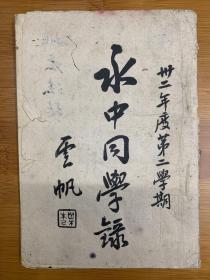 卅二年度第二学期
永中同學錄
雲帆